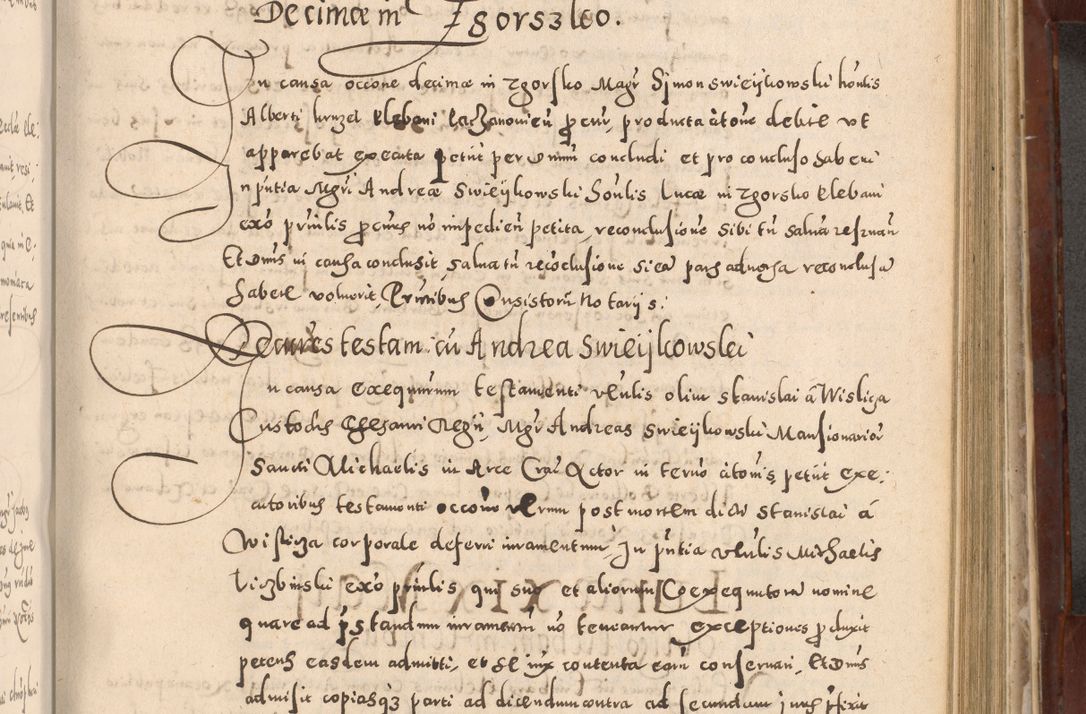 Decimæ in Zgorszko.
In causa occōne decimæ in Zgorsko Magr̄ Sÿmon swieÿkowski hon̄lis
Alberti kruzel klebani Laczanovien̄ procur̄, producta citōne debite ut
apparebat executa petiit per Dnm̄ concludi et pro concluso haberi
In pn̄tia Mgr̄i Andreæ Swieÿkowski Hon̄lis Lucæ in Zgorsko klebani
ex̄o prin̄lis procur̄is nō impedien̄ petita, reconclusione sibi tn̄ salva reservan̄
Et Dn̄us in causa conclusit, salva tn̄ recōclusione si ea pars adversa reconclusa
habere voluerit, Pr̄ntibus Consistorii Notarijs.
Execut̄res testam: cū Andrea Swieÿkowski
In causa Exequutorum testamenti vn̄lis olim Stanislai a Wislicza
Custodis Ecclesiarum Regn̄, Mgr̄ Andreas Swieÿkowski Mansionarior̄
Sancti Michaelis in Arce Crac̄ Actor in ter̄no citōnis petiit exe:
cutoribus testamenti occōne rerum post mortem dicti Stanislai a
Wislicza corporale deferri iuramentum, In pn̄tia vn̄lis Michaelis
Liczbinski ex̄o prin̄lis, qui suo et aliorum Coexequutorū nomine
quare ad pr̄standum iuramentū nō teneantur exceptiones produxit
petens easdem admitti, et se iux contenta earū conservari, Et Dn̄us
admisit copiasq3 parti ad dicendum contra ad secundam iuris pr̄fixit